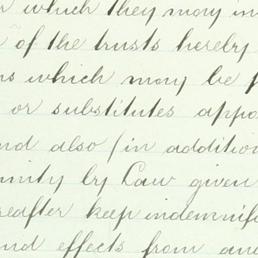 which they may in
of the trusts hereby
which may be
or substitutes appo
nd also (in addition
mnity by Law given
reafter keep indemnif
nd effects from and